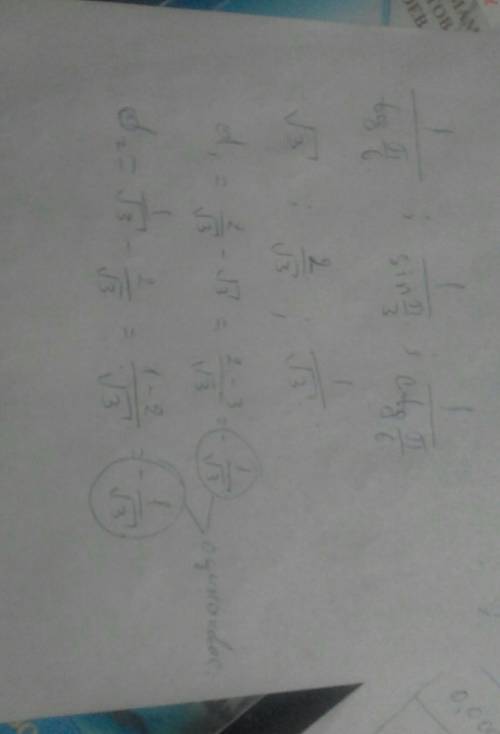 1/tg π/6 ; 1/sin π/3 ; 1/ctg π/6
√3 ; 2/√3 ; 1/√3
d₁ = 2/√3 - √3 = (2-3)/√3 = -1/√3
d₂ = 1/√3 - 2/√3 = (1-2)/√3 = -1/√3
0,00